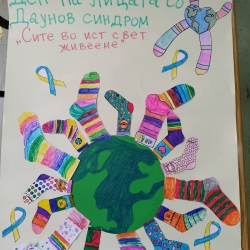 Ден на лицата со
Даунов синдром
„Сите во ист свет
живееме"